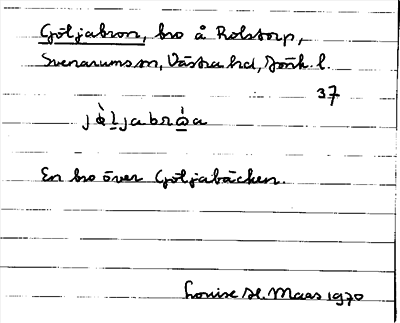 Göljabron, bro å Rolstorp,
Svenarums sn, Västra hd, Jönk. l.
37
jø̀l̠jabrώ̠a
En bro över Göljabäcken.
Louise H. Maas 1970